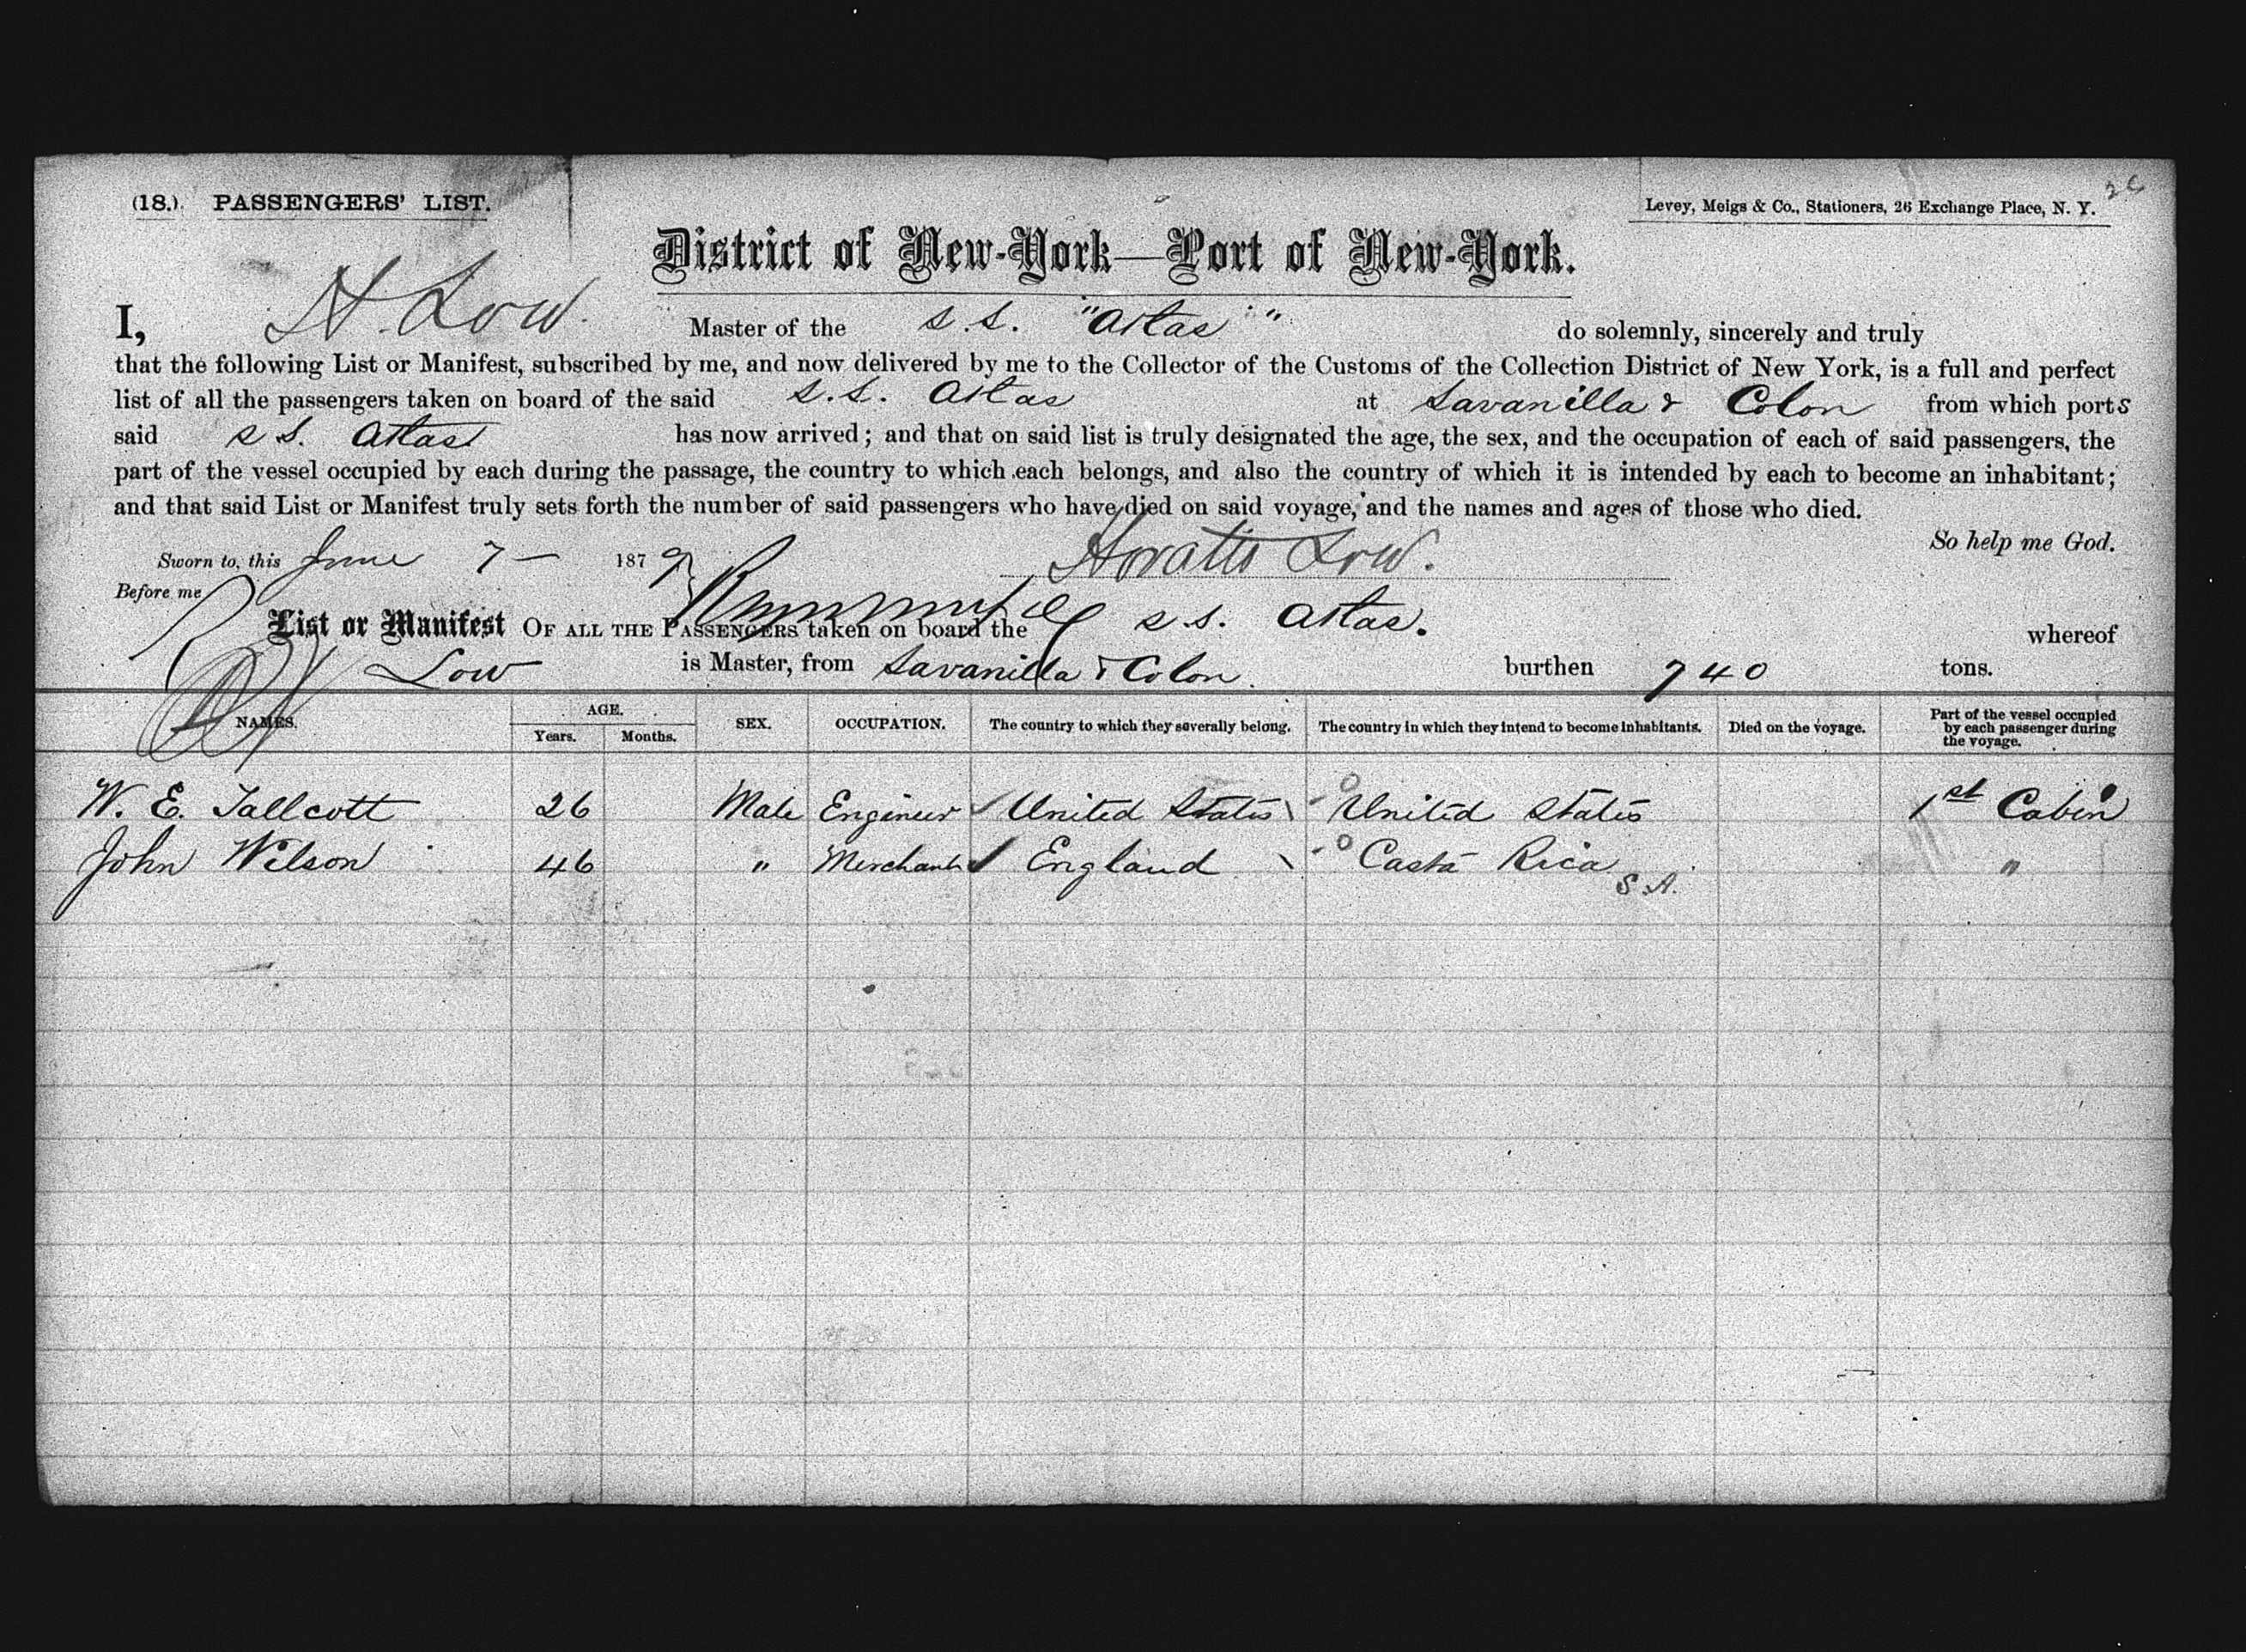 (18.) PASSENGERS' LIST.
Levey, Meigs & Co., Stationers, 26 Exchange Place, N. Y.
District of New-York—Port of New-York.
I, H. Low Master of the S.S. "Atlas" do solemnly, sincerely and truly
that the following List or Manifest, subscribed by me, and now delivered by me to the Collector of the Customs of the Collection District of New York, is a full and perfect
list of all the passengers taken on board of the said S.S. Atlas at Savanilla & Colon from which ports
said S S. Atlas has now arrived; and that on said list is truly designated the age, the sex, and the occupation of each of said passengers, the
part of the vessel occupied by each during the passage, the country to which each belongs, and also the country of which it is intended by each to become an inhabitant;
and that said List or Manifest truly sets forth the number of said passengers who have died on said voyage, and the names and ages of those who died.
So help me God.
Sworn to, this June 7 — 1879 Horatio Low.
Before me
List or Manifest OF ALL THE PASSENGERS taken on board the S.S. Atlas. whereof
Low is Master, from Savanilla & Colon. burthen 740 tons.
NAMES. AGE. Years. Months. SEX. OCCUPATION. The country to which they severally belong. The country in which they intend to become inhabitants. Died on the voyage. Part of the vessel occupied by each passenger during the voyage.
W. E. Tallcott 26 Male Engineer United States United States 1st Cabin
John Wilson 46 " Merchant England Casta Rica S.A. "